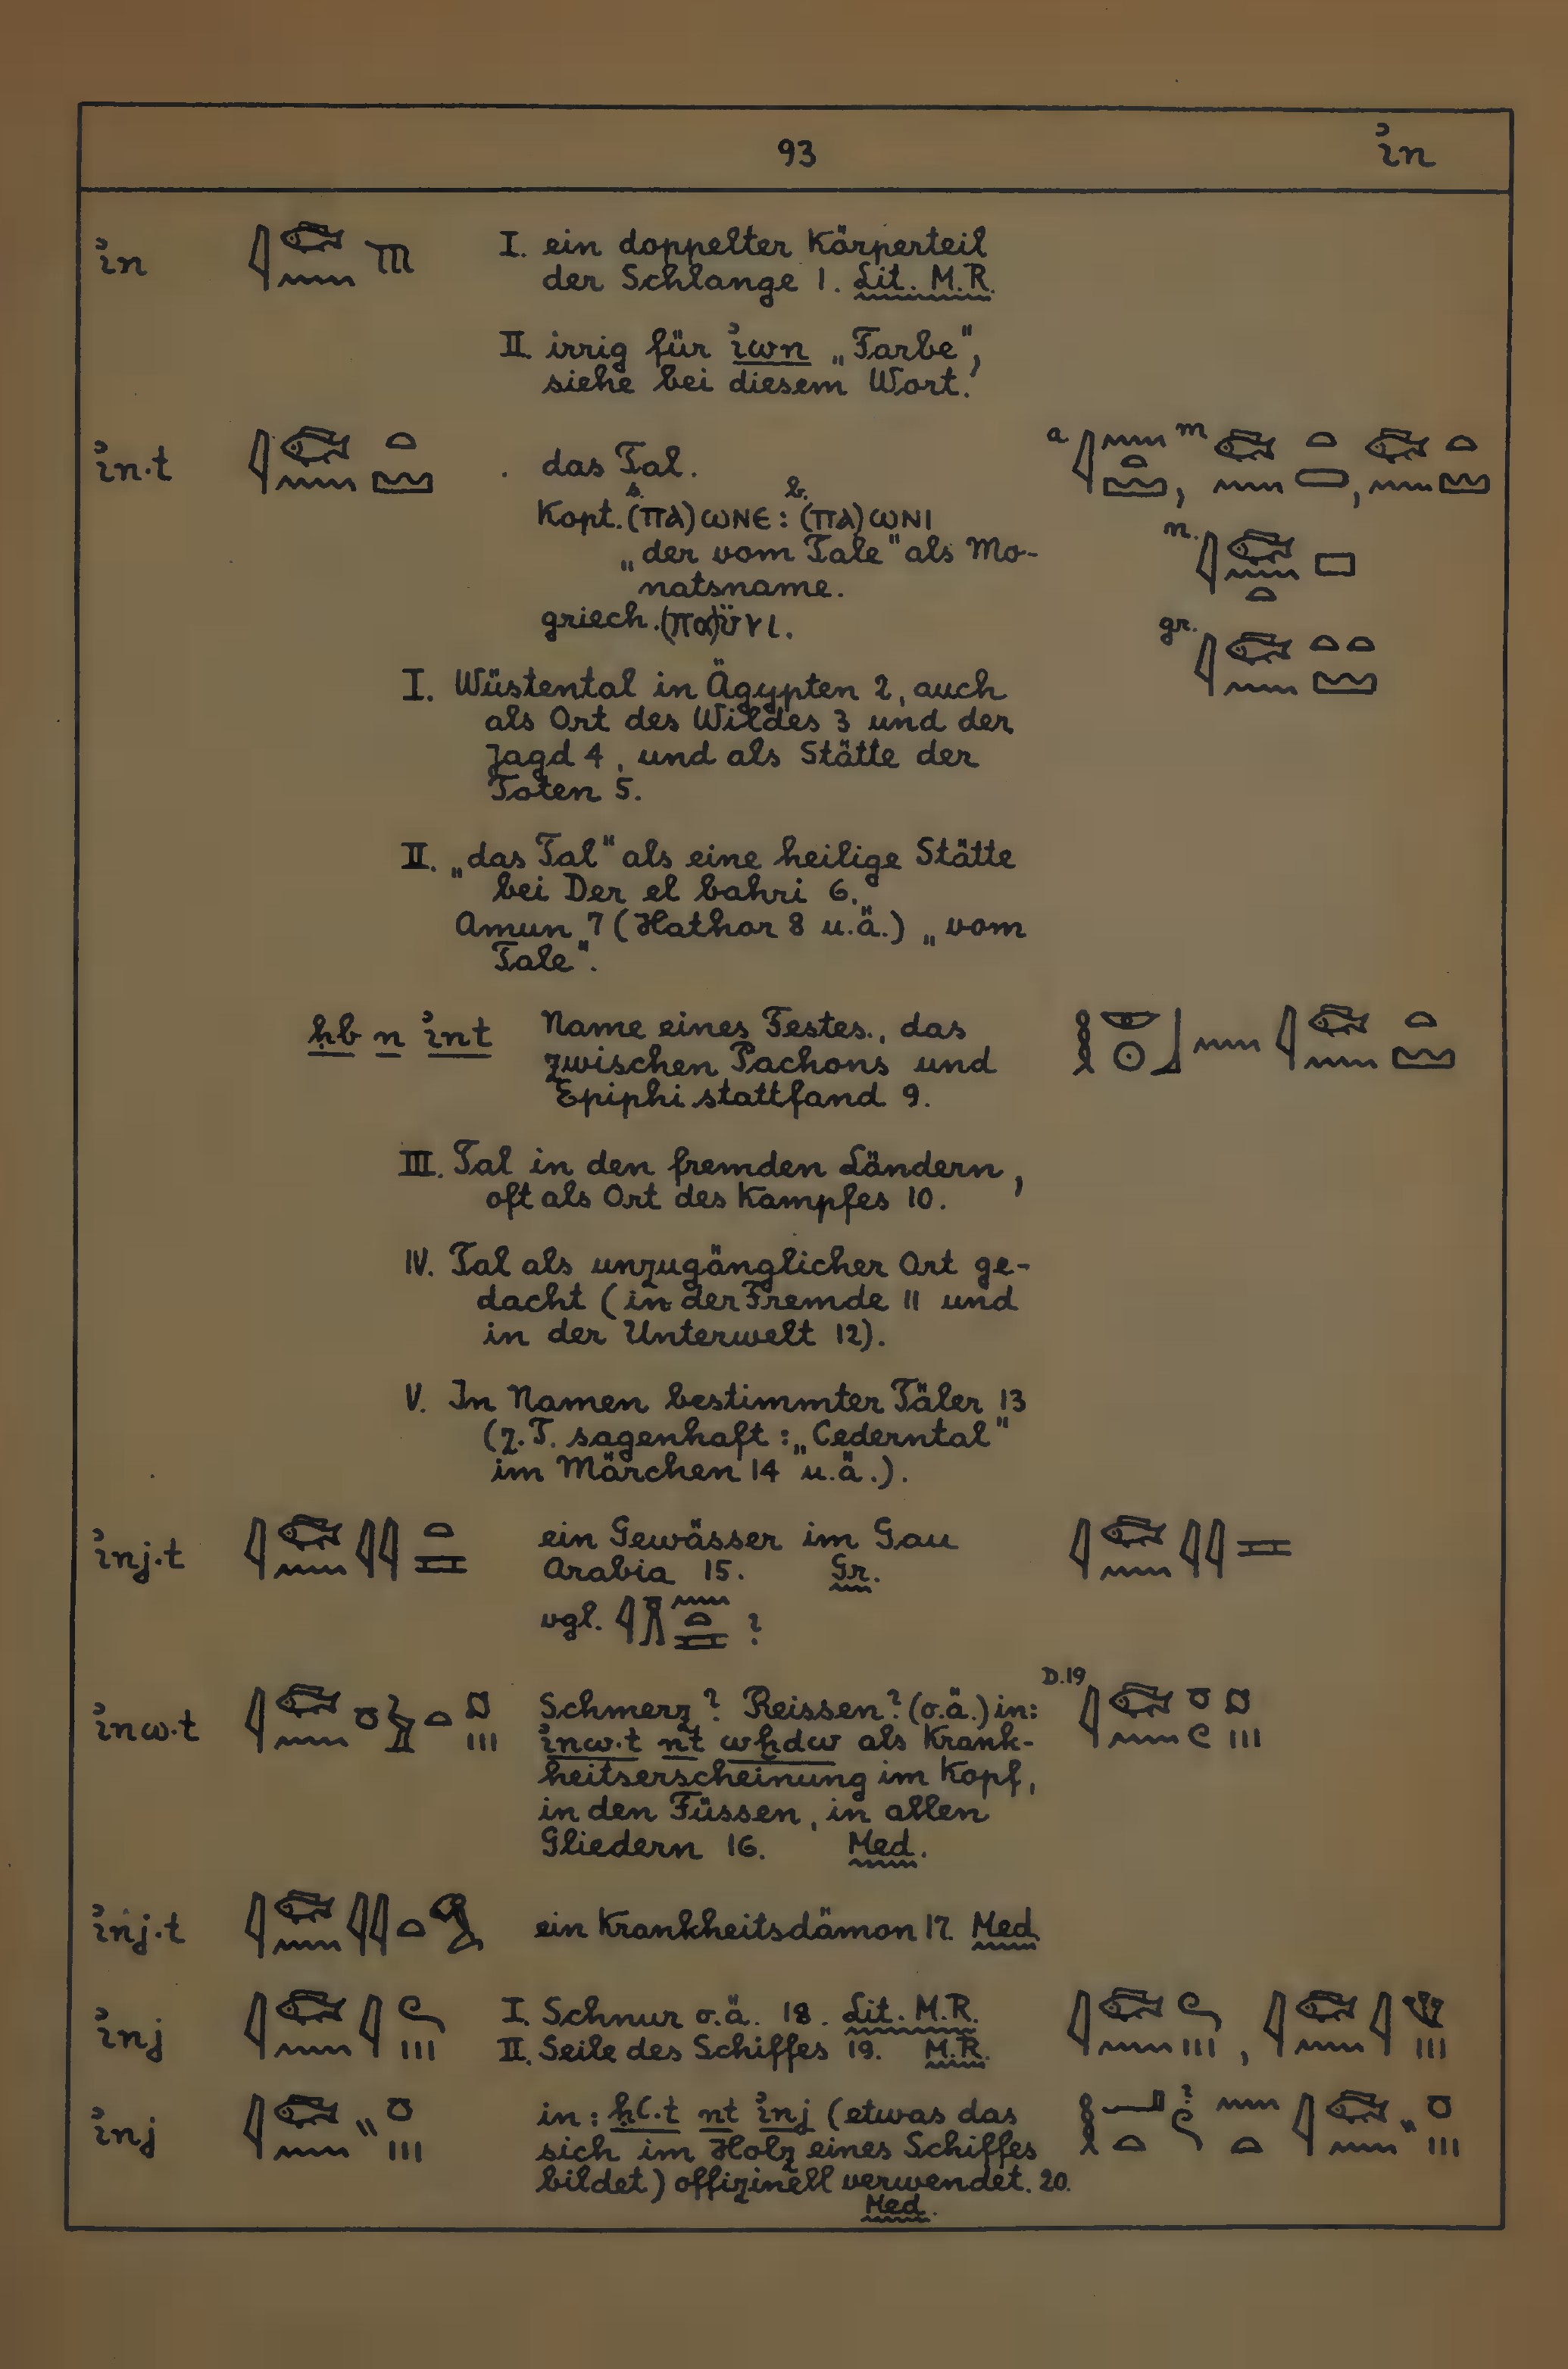 93 ỉn
ỉn 𓇋𓆛𓈖𓄹 I. ein doppelter Körperteil
der Schlange 1. Lit. M.R.
II. irrig für ỉwn „Farbe",
siehe bei diesem Wort.
ỉn·t 𓇋𓆛𓈖𓏏𓈊 das Tal.
Kopt. s. (ⲡⲁ)ⲱⲛⲉ : b. (ⲡⲁ)ⲱⲛⲓ
„der vom Tale" als Mo-
natsname.
griech. (πα)ϋνι.
a 𓇋𓈖𓏏𓈊, m 𓆛𓈖𓏏, 𓆛𓈖𓏏𓈊
n. 𓇋𓆛𓈖𓏏𓈅
gr. 𓇋𓆛𓈖𓏏𓏏𓈊
I. Wüstental in Ägypten 2, auch
als Ort des Wildes 3 und der
Jagd 4, und als Stätte der
Toten 5.
II. „das Tal" als eine heilige Stätte
bei Der el bahri 6.
Amun 7 (Hathor 8 u.ä.) „vom
Tale".
ḥb n ỉnt Name eines Festes., das
zwischen Pachons und
Epiphi stattfand 9.
III. Tal in den fremden Ländern,
oft als Ort des Kampfes 10.
IV. Tal als unzugänglicher Ort ge-
dacht (in der Fremde 11 und
in der Unterwelt 12).
V. In Namen bestimmter Täler 13
(z.T. sagenhaft: „Cederntal"
im Märchen 14 u.ä.).
ỉnj·t 𓇋𓆛𓈖𓇌𓏏𓈘 ein Gewässer im Gau 𓇋𓆛𓈖𓇌𓈘
Arabia 15. Gr.
vgl. ?
ỉnw·t Schmerz? Reissen? (o.ä.) in: D.19
ỉnw·t nt wḫdw als Krank-
heitserscheinung im Kopf,
in den Füssen, in allen
Gliedern 16. Med.
ỉnj·t 𓇋𓆛𓈖𓇌𓏏𓀐 ein Krankheitsdämon 17. Med.
ỉnj 𓇋𓆛𓈖𓇋𓍢𓏥 I. Schnur o.ä. 18. Lit. M.R. 𓇋𓆛𓈖𓍢𓏥,
II. Seile des Schiffes 19. M.R.
ỉnj 𓇋𓆛𓈖𓏭𓏌𓏥 in: ḥꜥ·t nt ỉnj (etwas das
sich im Holz eines Schiffes
bildet) offizinell verwendet. 20.
Med.